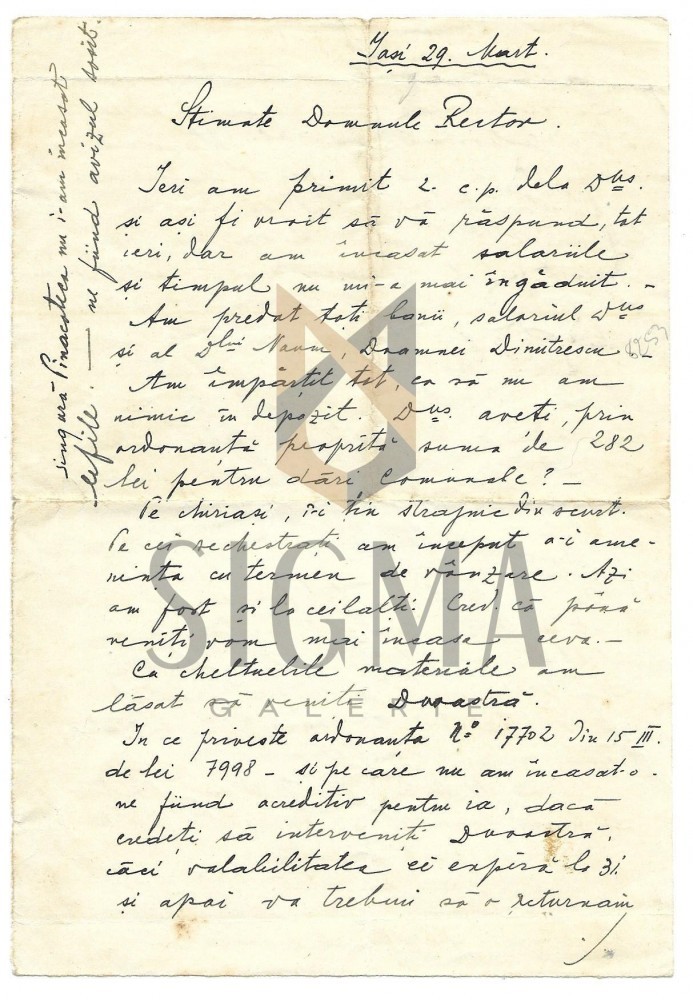 Iași 29. Mart.
Stimate Domnule Rector.
Ieri am primit 2. c.p. dela Dvs.
și ași fi vroit să vă răspund, tot
ieri, dar am încasat salariile
și timpul nu mi-a mai îngăduit. -
Am predat toți banii, salariul Dvs
și al Dlui Naum, Doamnei Dimitrescu
Am împărțit tot, ca să nu am
nimic în depozit. Dvs. aveți, prin
ordonanță proprită suma de 282
lei pentru dări comunale? -
Pe chiriași, i-i țin strașnic din scurt.
Pe cei sechestrați am început a-i ame-
nința cu termen de vânzare. Azi
am fost și la ceilalți. Cred că până
veniți vom mai încasa ceva. -
Cu cheltuelile materiale am
lăsat să veniți Dvoastră.
In ce privește ordonanța No 17702 din 15 III.
de lei 7998 - și pe care nu am încasat-o -
ne fiind acreditiv pentru ia, dacă
credeți să interveniți Dvoastră,
căci valabilitatea ei expiră la 31
și apoi va trebui să o returnăm
singură Pinacoteca nu i-am încasat
lefile. — ne fiind avizul sosit.
SIGMA
GALERIE